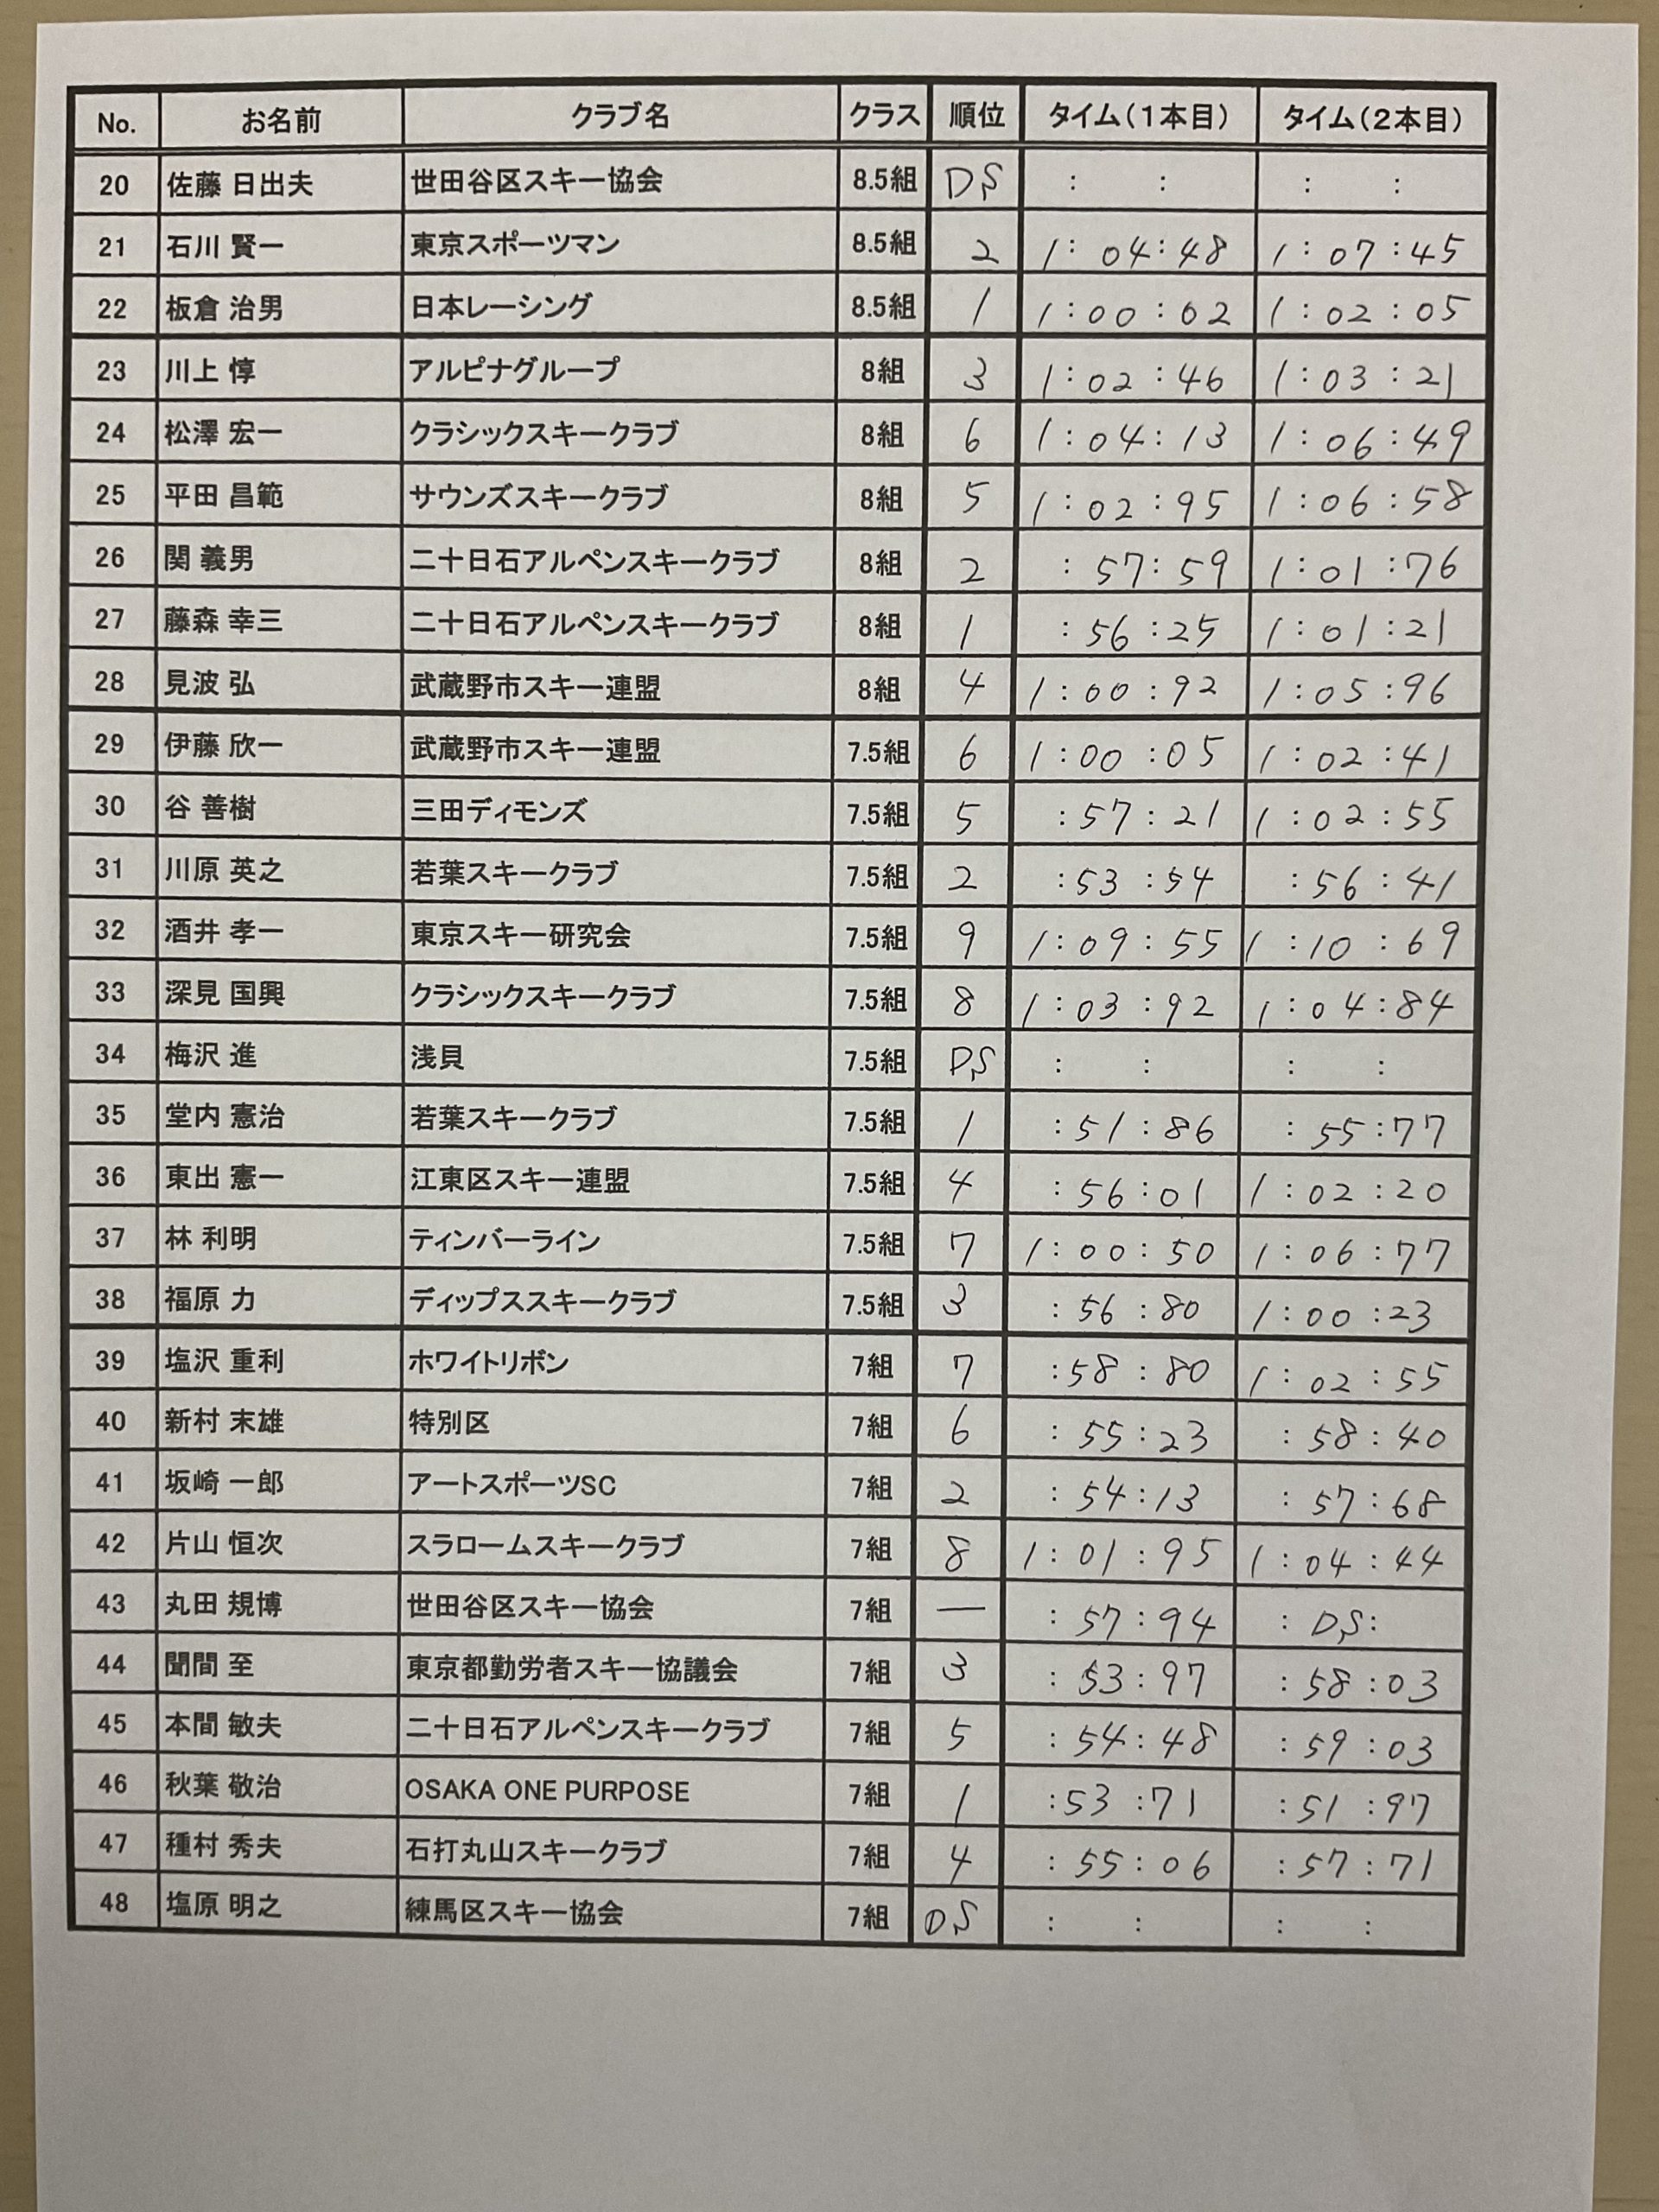 No. お名前 クラブ名 クラス 順位 タイム(1本目) タイム(2本目)
20 佐藤 日出夫 世田谷区スキー協会 8.5組 DS : : : :
21 石川 賢一 東京スポーツマン 8.5組 2 1:04:48 1:07:45
22 板倉 治男 日本レーシング 8.5組 1 1:00:02 1:02:05
23 川上 惇 アルピナグループ 8組 3 1:02:46 1:03:21
24 松澤 宏一 クラシックスキークラブ 8組 6 1:04:13 1:06:49
25 平田 昌範 サウンズスキークラブ 8組 5 1:02:95 1:06:58
26 関 義男 二十日石アルペンスキークラブ 8組 2 :57:59 1:01:76
27 藤森 幸三 二十日石アルペンスキークラブ 8組 1 :56:25 1:01:21
28 見波 弘 武蔵野市スキー連盟 8組 4 1:00:92 1:05:96
29 伊藤 欣一 武蔵野市スキー連盟 7.5組 6 1:00:05 1:02:41
30 谷 善樹 三田ディモンズ 7.5組 5 :57:21 1:02:55
31 川原 英之 若葉スキークラブ 7.5組 2 :53:54 :56:41
32 酒井 孝一 東京スキー研究会 7.5組 9 1:09:55 1:10:69
33 深見 国興 クラシックスキークラブ 7.5組 8 1:03:92 1:04:84
34 梅沢 進 浅貝 7.5組 DS : : : :
35 堂内 憲治 若葉スキークラブ 7.5組 1 :51:86 :55:77
36 東出 憲一 江東区スキー連盟 7.5組 4 :56:01 1:02:20
37 林 利明 ティンバーライン 7.5組 7 1:00:50 1:06:77
38 福原 力 ディップススキークラブ 7.5組 3 :56:80 1:00:23
39 塩沢 重利 ホワイトリボン 7組 7 :58:80 1:02:55
40 新村 末雄 特別区 7組 6 :55:23 :58:40
41 坂崎 一郎 アートスポーツSC 7組 2 :54:13 :57:68
42 片山 恒次 スラロームスキークラブ 7組 8 1:01:95 1:04:44
43 丸田 規博 世田谷区スキー協会 7組 — :57:94 :DS:
44 聞間 至 東京都勤労者スキー協議会 7組 3 :53:97 :58:03
45 本間 敏夫 二十日石アルペンスキークラブ 7組 5 :54:48 :59:03
46 秋葉 敬治 OSAKA ONE PURPOSE 7組 1 :53:71 :51:97
47 種村 秀夫 石打丸山スキークラブ 7組 4 :55:06 :57:71
48 塩原 明之 練馬区スキー協会 7組 DS : : : :